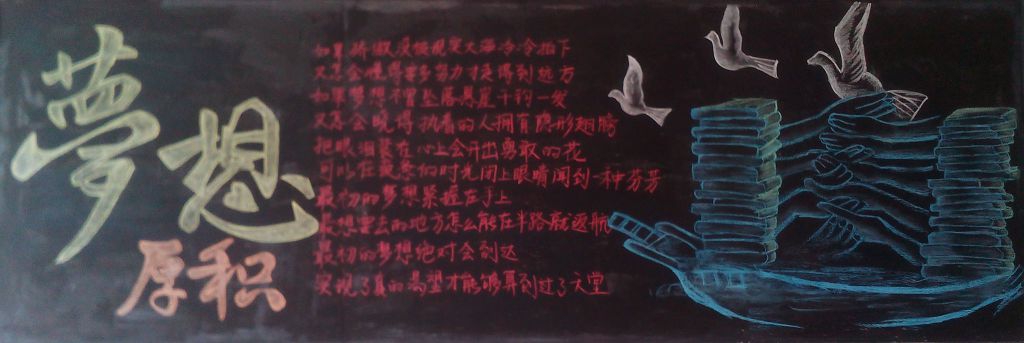 夢想
厚积
如果骄傲没被现实大海冷冷拍下
又怎会懂得要多努力才走得到远方
如果夢想不曾坠落悬崖千钧一发
又怎会晓得执着的人拥有隐形翅膀
把眼泪装在心上会开出勇敢的花
可以在疲惫的时光闭上眼睛闻到一种芬芳
最初的夢想紧握在手上
最想要去的地方怎么能在半路就返航
最初的夢想绝对会到达
实现了真的渴望才能够算到过了天堂